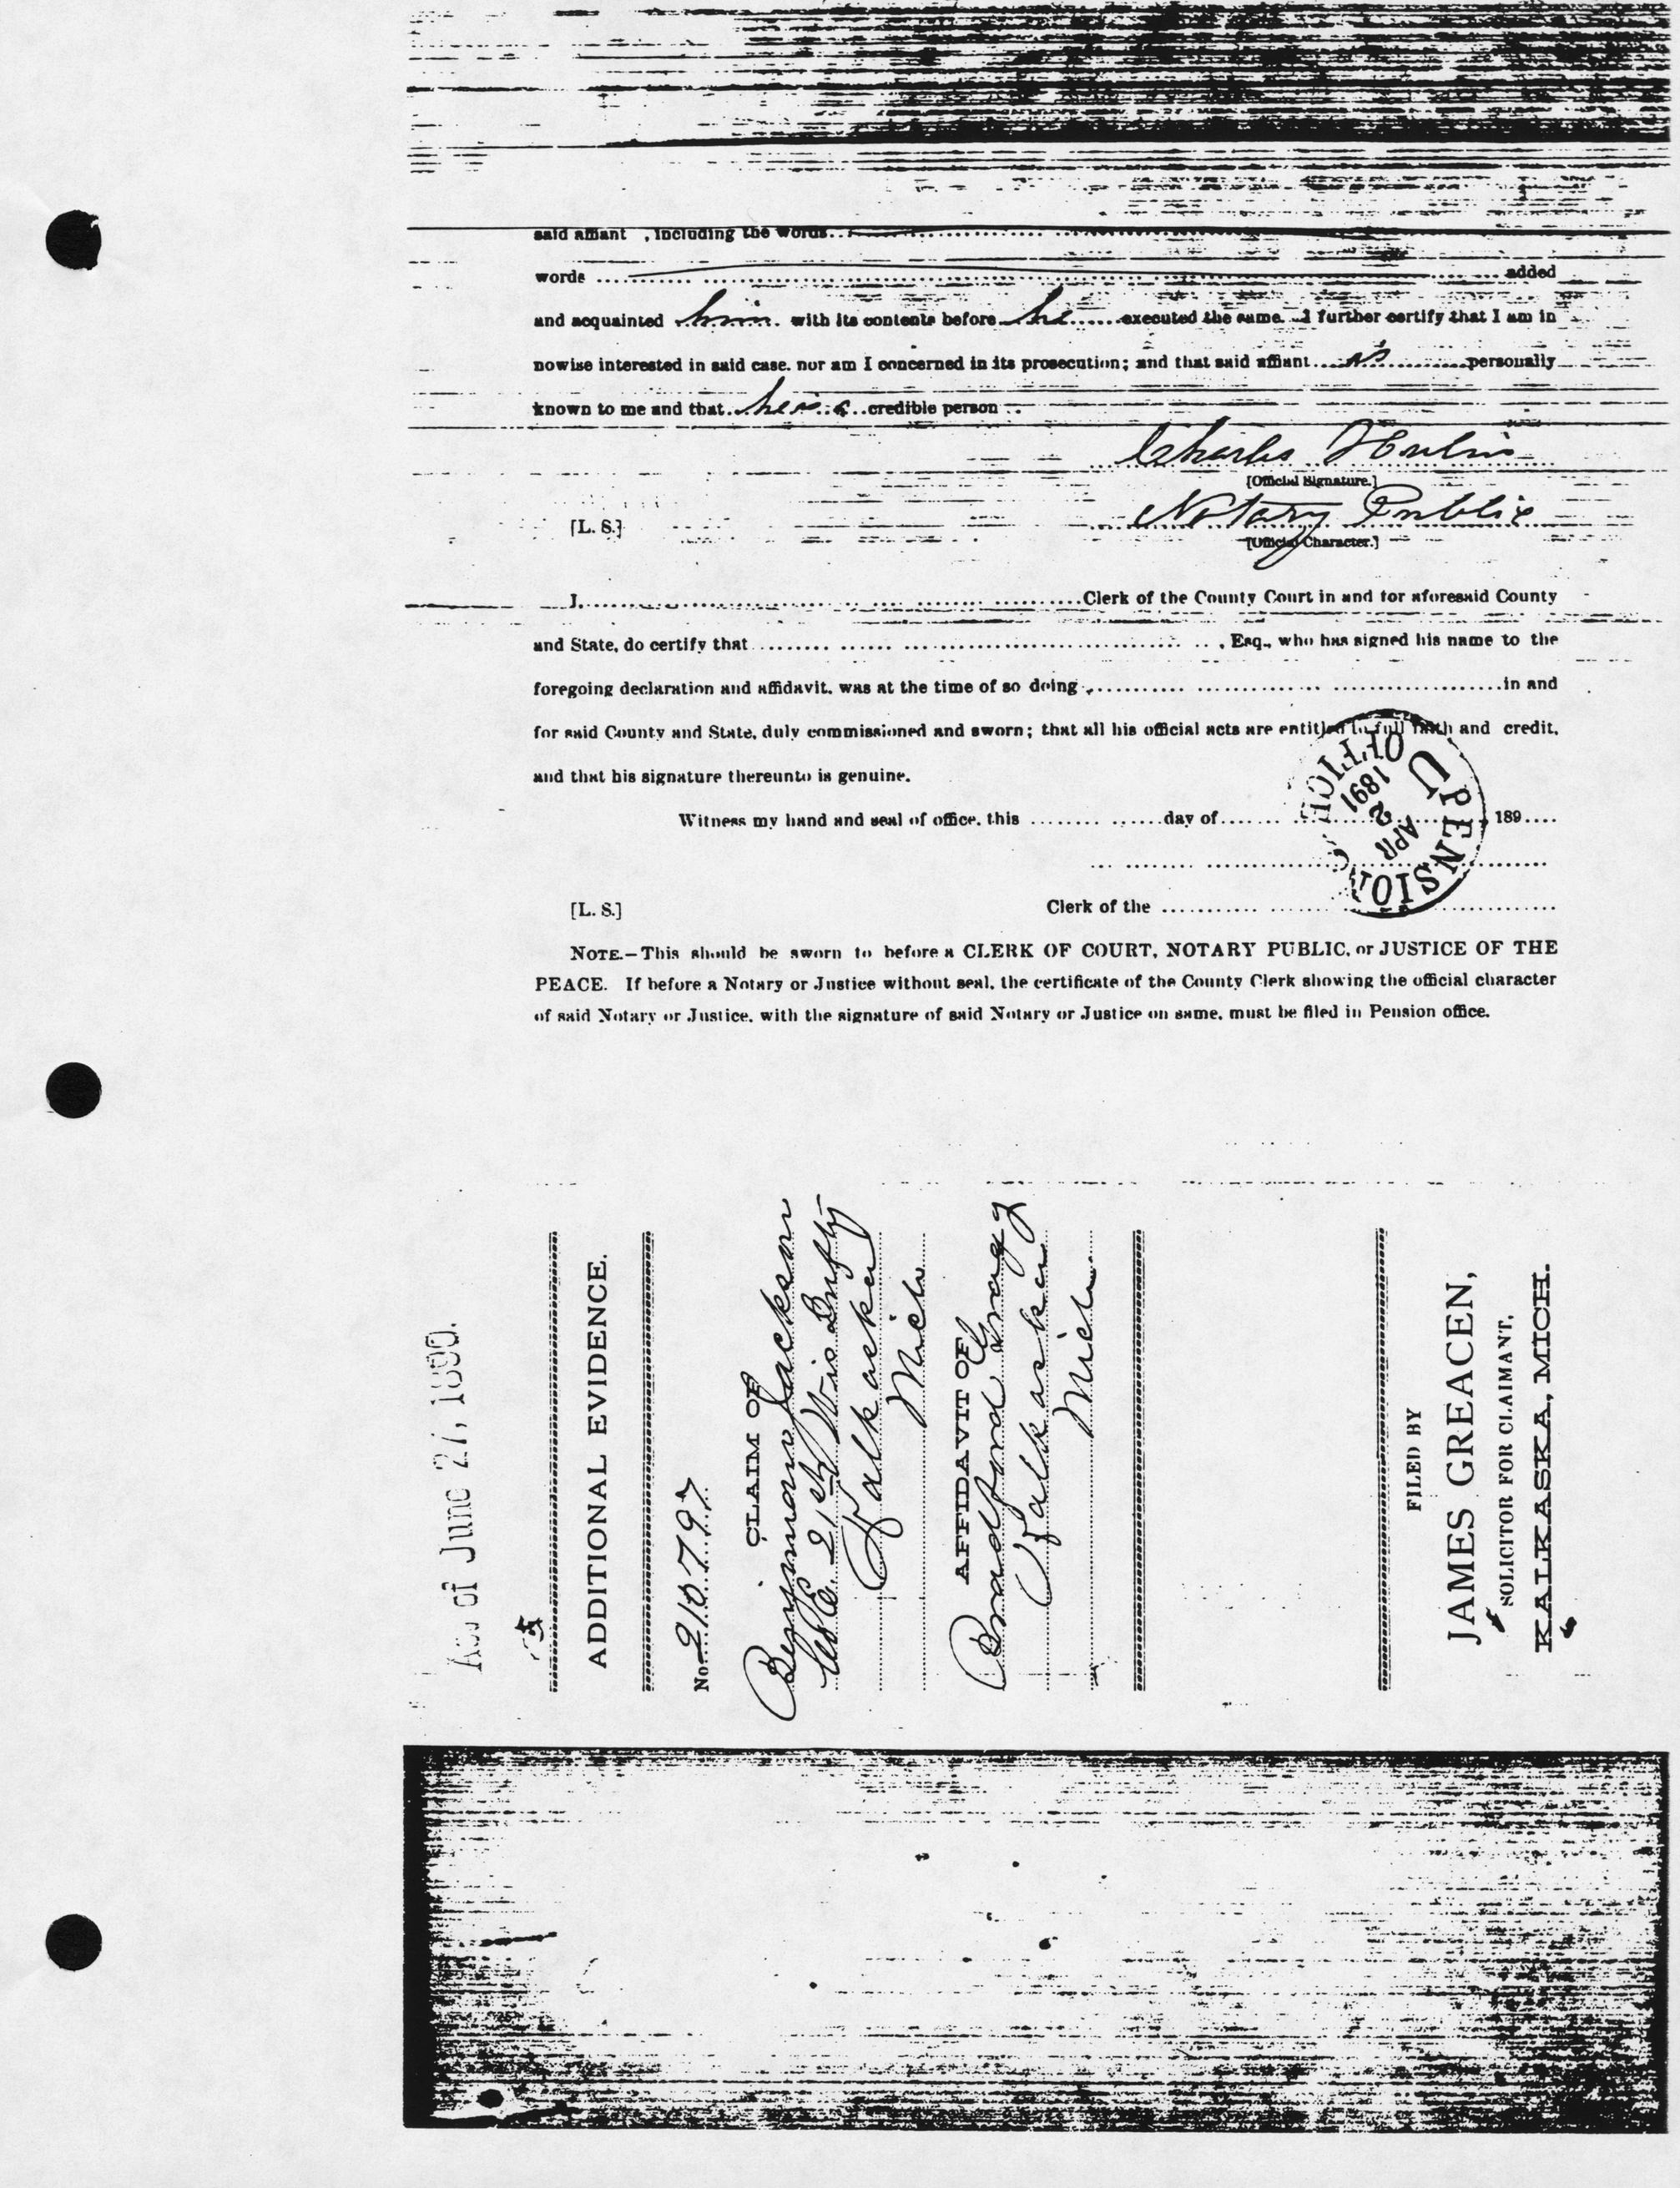 said affiant , including the words
words added
and acquainted him with its contents before he executed the same. I further certify that I am in
nowise interested in said case. nor am I concerned in its prosecution; and that said affiant is personally
known to me and that he is a credible person
Charles
[Official Signature.]
Notary Public
[L. S.]
[Official Character.]
I, Clerk of the County Court in and for aforesaid County
and State, do certify that , Esq., who has signed his name to the
foregoing declaration and affidavit. was at the time of so doing in and
for said County and State, duly commissioned and sworn; that all his official acts are entitled to full faith and credit,
and that his signature thereunto is genuine.
Witness my hand and seal of office, this day of , 189
[L. S.] Clerk of the
U.S. PENSION OFFICE
APR 2 1891
NOTE.—This should be sworn to before a CLERK OF COURT, NOTARY PUBLIC, or JUSTICE OF THE
PEACE. If before a Notary or Justice without seal, the certificate of the County Clerk showing the official character
of said Notary or Justice, with the signature of said Notary or Justice on same, must be filed in Pension office.
Act of June 27, 1890.
ADDITIONAL EVIDENCE.
No.
CLAIM OF
Benjamin Jackson
Co E 21st Wis Infty
Kalkaska
Mich
AFFIDAVIT OF
Bradford C
Kalkaska
Mich
FILED BY
JAMES GREACEN,
SOLICITOR FOR CLAIMANT,
KALKASKA, MICH.